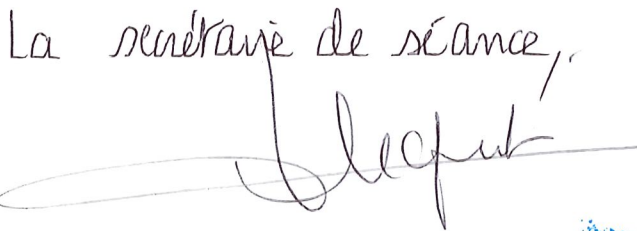 La secrétaire de séance,